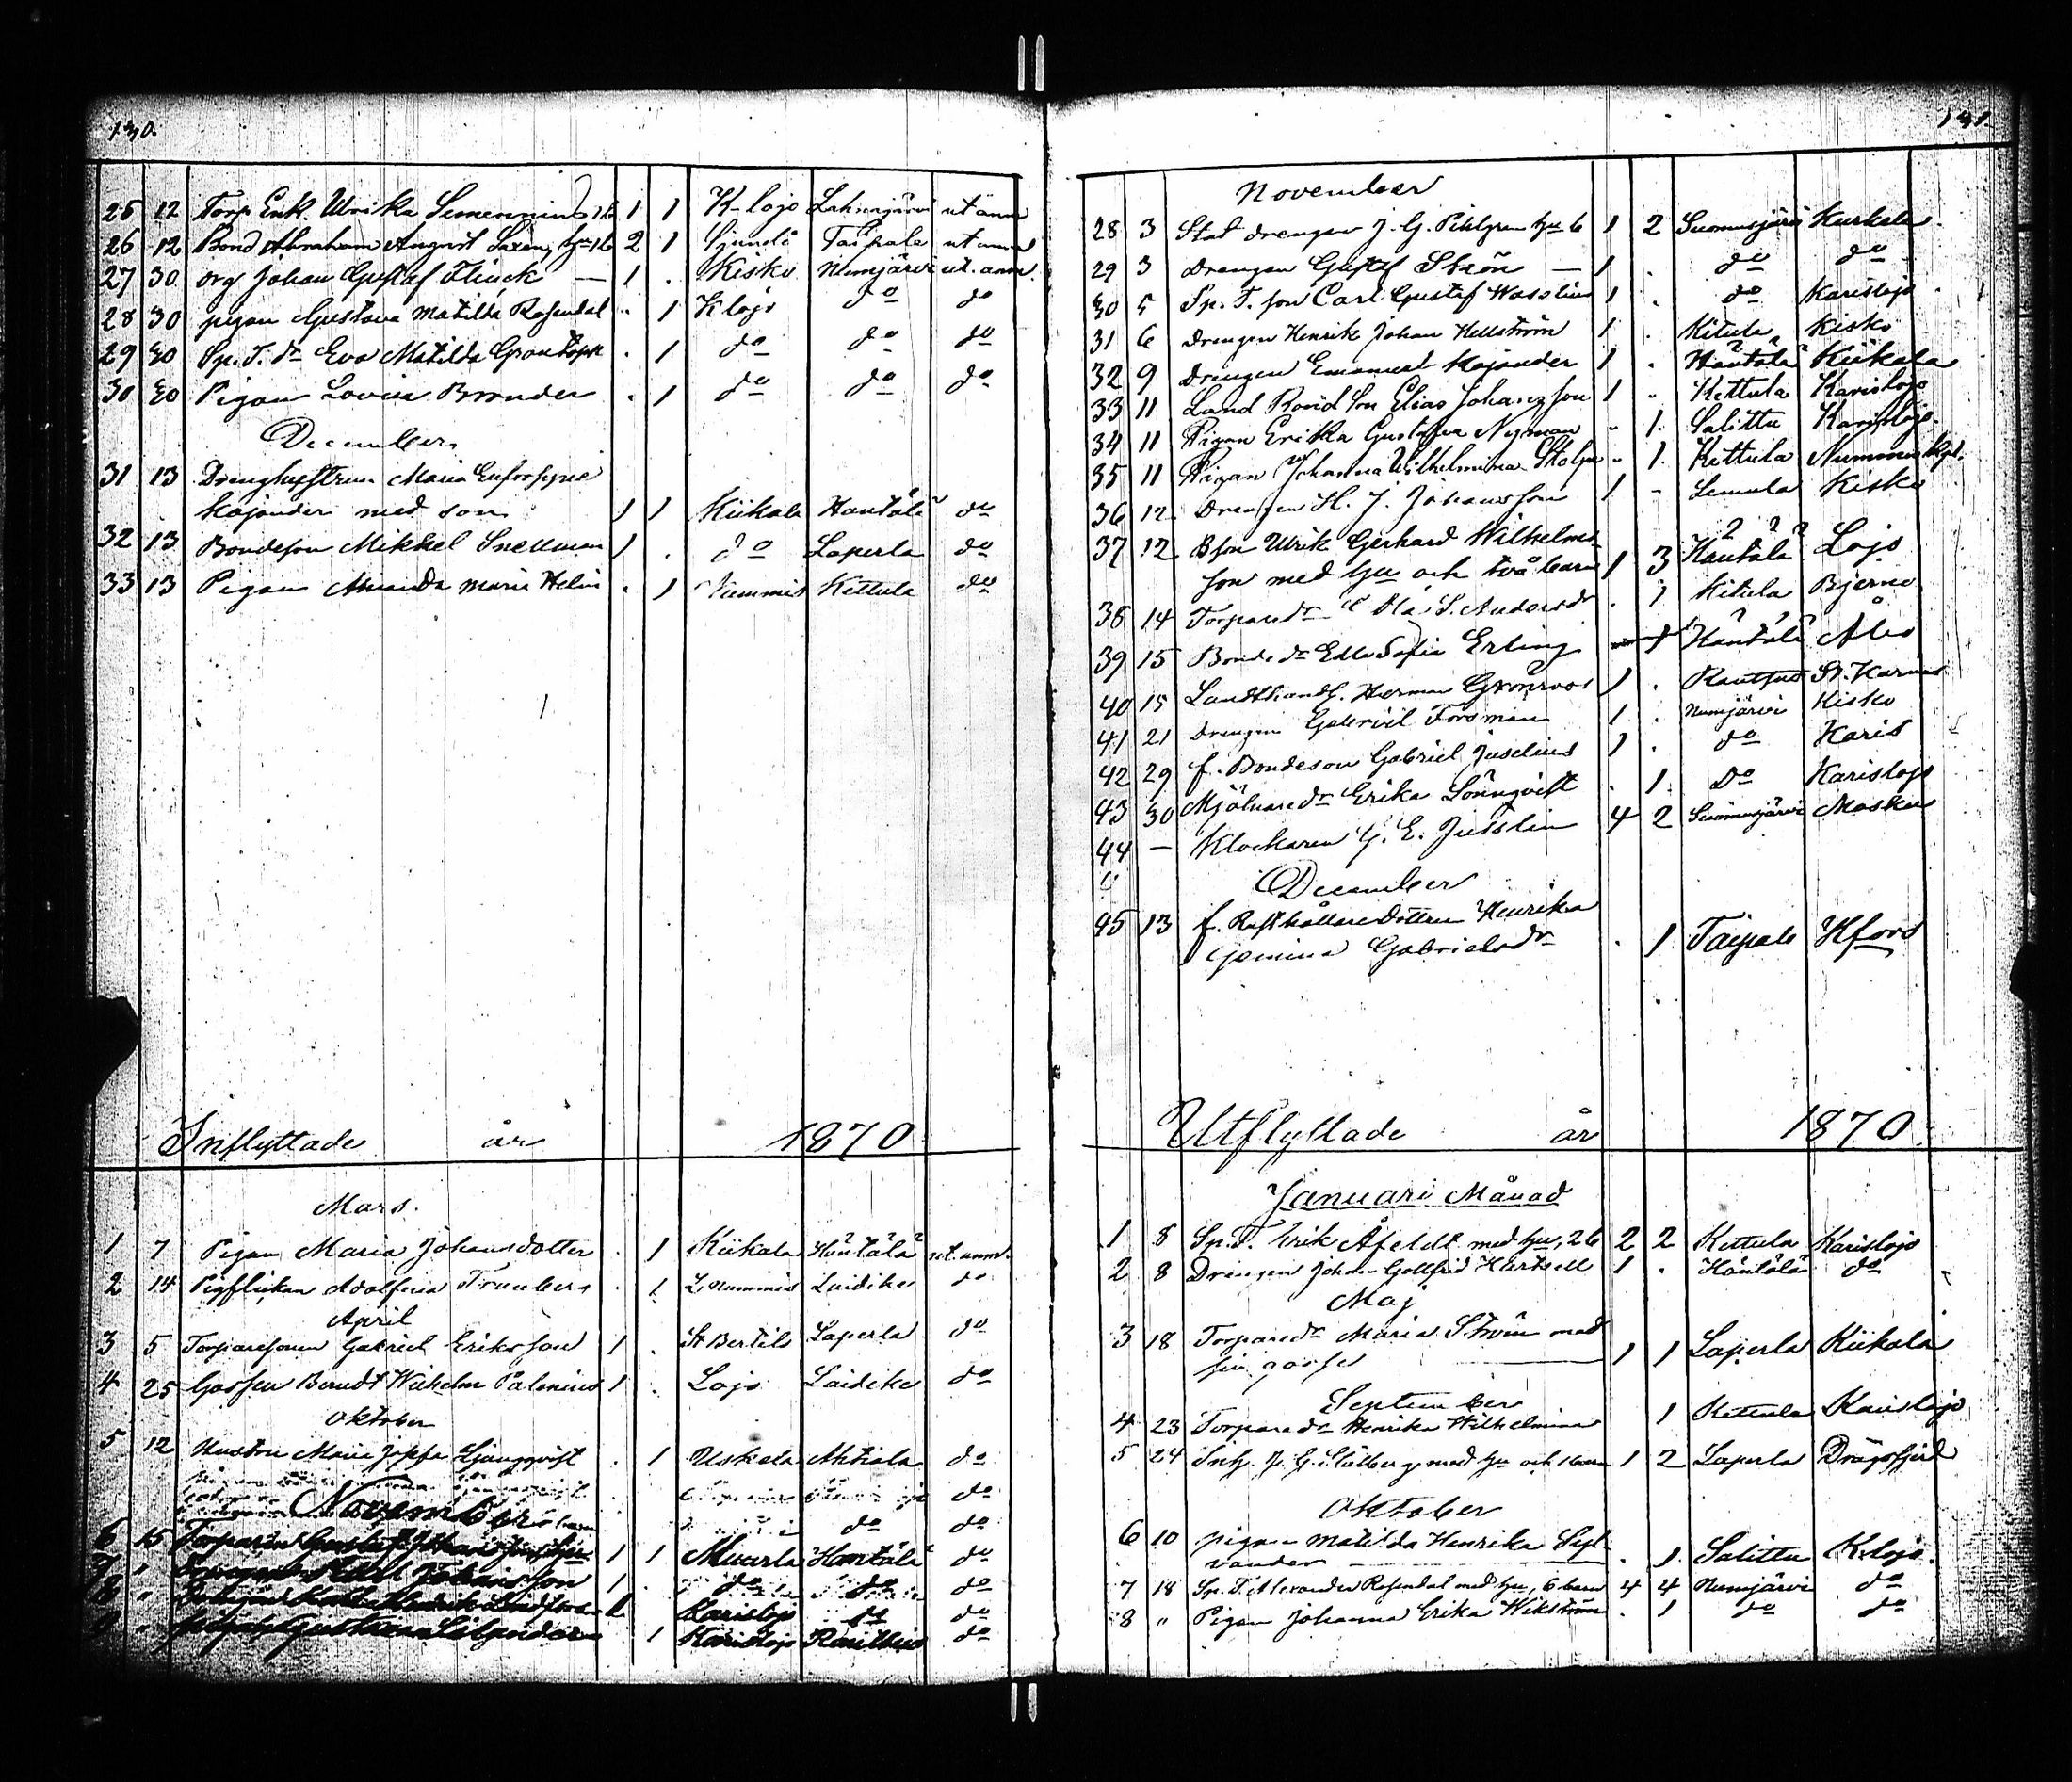 130.
25 12 Torp. Enk. Ulrika 1 1 K-lojo Lahnajärvi ut anm
26 12 Bond Abraham August Saxen, hu 16 2 1 Sjundå Taipale ut anm
27 30 org Johan Gustaf Flinck — 1 . Kisko Numjärvi ut. anm.
28 30 pigan Gustava Matilda Rosendal . 1 K lojo do do
29 30 Sp. T. dr Eva Matilda . 1 do do do
30 30 Pigan Lovisa Brander . 1 do do do
December
31 13 Maria
Kajander med son 1 1 Kiikala Hantälä do
32 13 Bondeson Mikkel Snellman 1 . do Laperla do
33 13 Pigan Amanda Maria Helin . 1 Nummis Kettula do
Inflyttade år 1870
Mars.
1 7 Pigan Maria Johansdotter . 1 Kiikala Häntälä ut. anm.
2 14 Pigflickan Adolfina . 1 L Nummis Laidike do
April
3 5 Torparesonen Gabriel Eriksson 1 . St Bertils Laperla do
4 25 Gossen Berndt Wilhelm Palenius 1 . Lojo Laidike do
Oktober
5 12 Hustru Maria Josefa Ljungqvist . 1 Uskela Ahtiala do
do
November
do do
6 15 Torparen Gustaf 1 1 Muurla Hantälä do
7 " Johansson 1 . do do do
8 " Karislojo do do
9 " 1 Karislojo do
131.
November
28 3 Stat drengen J. G. Pihlgren hu 6 1 2 Suomusjärvi Kurkela
29 3 Drengen Gustaf Ström — 1 . do do
30 5 Sp. T. son Carl Gustaf Waselius 1 . do Karislojo
31 6 Drengen Henrik Johan Hellström 1 . Kitula Kisko
32 9 Drengen Emanuel Kajander 1 . Häntälä Kiikala
33 11 Land Bond Son Elias Johansson 1 . Kettula Karislojo
34 11 Pigan Erika Gustafva Nyman - 1. Salittu Karislojo.
35 11 Pigan Johanna Wilhelmina Stolpe - 1. Kettula Nummis Kpl.
36 12 Drengen H. J. Johansson 1 - Lemula Kisko
37 12 Bson Ulrik Gerhard Wilhelms-
son med hu och två barn 1 3 Häntälä Lojo
38 14 Torparedr S. Andersdr . 1 Kitula Bjerno
39 15 Bondedr Edla Sofia Erling 1 Häntälä Åbo
40 15 Landthandl. Herman Grönroos 1 . St. Karins
41 21 Drengen Gabriel Forsman 1 . Numjärvi Kisko
42 29 f. Bondeson Gabriel Juselius 1 . do Karis
43 30 Mjölnaredr Erika Lönnqvist . 1. Do Karislojo
44 — Klockaren G. E. Jusslin 4 2 Suomusjärvi Masku
December
45 13 f. Rusthållaredottren Henrika
Gabrielsdr . 1 Taipale Hfors
Utflyttade år 1870
Januari Månad
1 8 Sp. T. Erik Åfeldt med hu, 26 2 2 Kettula Karislojo
2 8 Drengen Johan Gottfrid Hartzell 1 . Häntälä do
Maj
3 18 Torparedr Maria Ström med
sin gosse 1 1 Laperla Kiikala
September
4 23 Torparedr Henrika Wilhelmina 1 Kettula Karislojo
5 24 Inh. J. G. Stålberg med hu och 1 barn 1 2 Laperla Dragsfjerd
Oktober
6 10 pigan Matilda Henrika
— . 1 Salittu K-lojo.
7 18 Sp. T. Alexander Rosendal med hu, 6 barn 4 4 Numjärvi do
8 " Pigan Johanna Erika Wikström . 1 do do